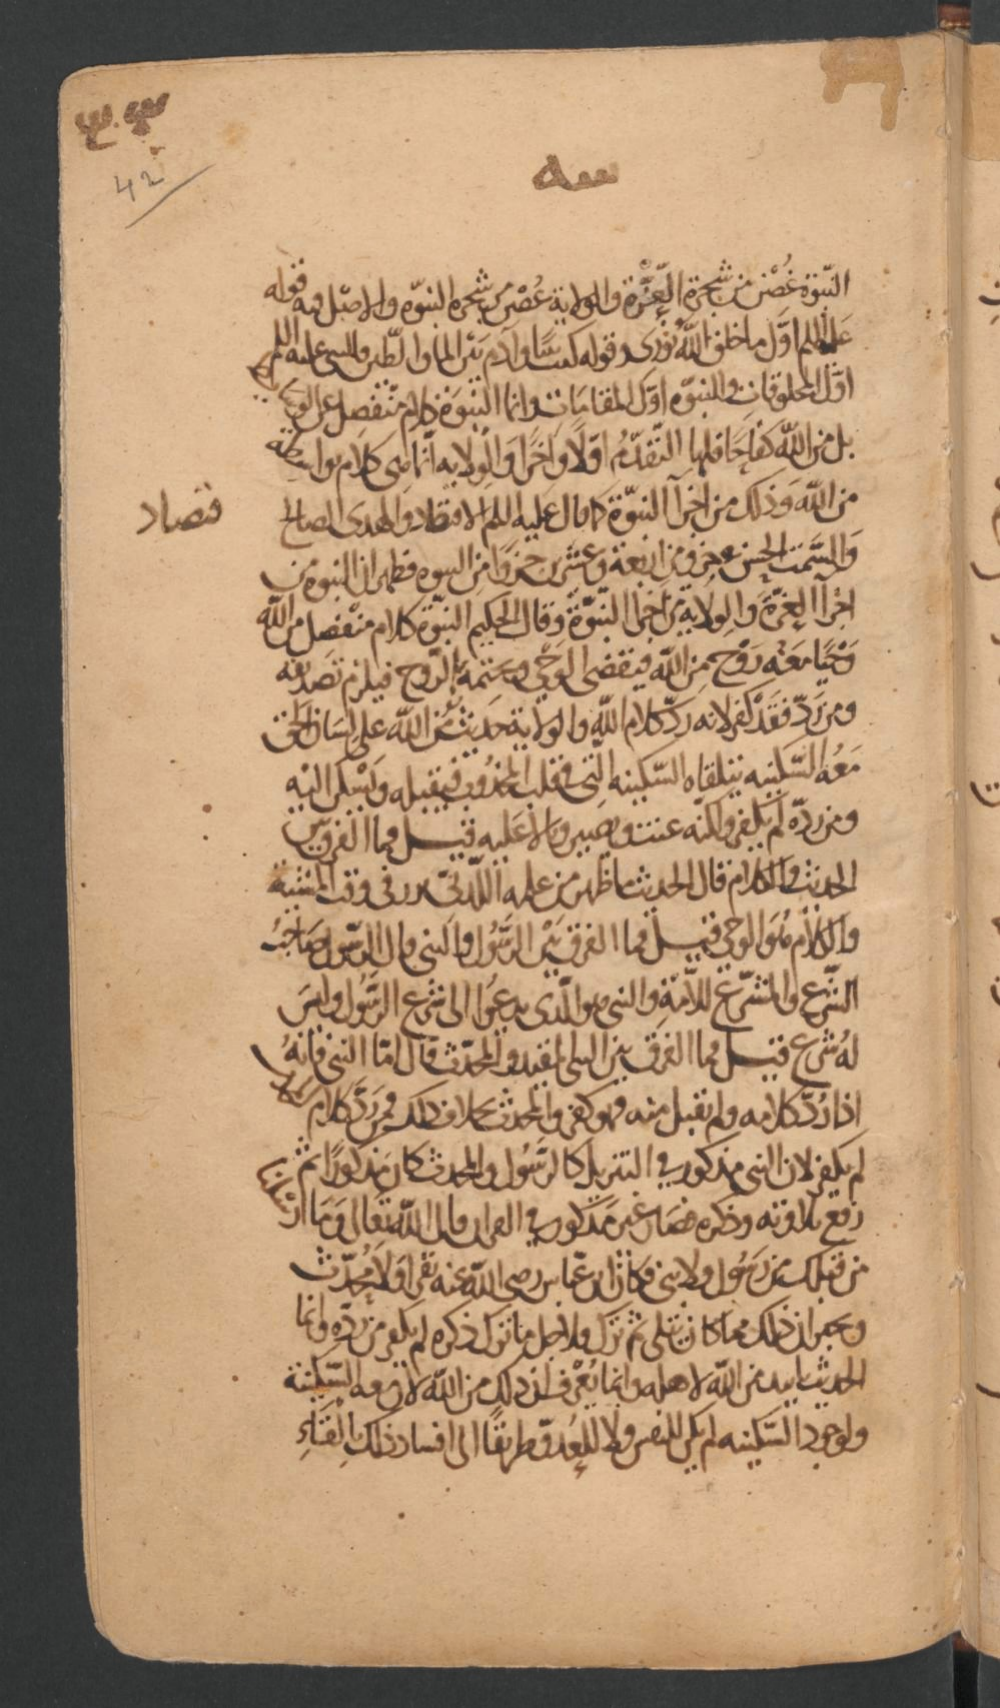 42
النبوّة غُصْن من شجرة العِزّة والولاية غُصْن من شجره النبوّه والاصْل فيه قوله
عليه السلم اوّل ما خلق اللّه نُوْرى وقوله كنت نبيّا وآدم بَيْن الماء والطّين والنبى عليه السلم
اوّل المخلوقات والنبوّه اوّل المقامَات وانما النبوّة كلام منفصل عن
بل من اللّه كفاحًا فلها التقدّمُ اوّلًا واخرًا والولايه انما هى كلام بواسطة
من اللّه وَذلك من اخرآ النبوّة كما قال عليه السلم الاقتصاد والهدى الصالح
اقتصاد
وَالسَّمت الحسن جزؤ من اربعة وعشرين جزوًا من النبوه فظهر ان النبوه من
اجزآ العِزّة وَالولاية من اجزآ النبُوّة وقال الحكيم النبوّة كلام منْفصل من اللّه
وَحْيًا مَعَه رَوْح من اللّه فينقضى الوَحْى ويختمه بالرّوح فيلزم تصديقه
ومن رَدّ فقَدْ كفر لانه رَدّ كلام اللّه والولاية حَديث من اللّه على لسَان الحق
مَعَه السّكينه تتلقاه السّكينه الّتى فى قلب المجذوب فيقبله ويَسْكن اليْه
ومن ردّه لم يكفر ولكنّه عنت ويصير وبالا عليه قيل فما الفرق بين
الحديث والكلام قال الحديث ما ظهر من علمه الّذى برز فى وقت المشية
والكلام هُوَ الوحى قيل فما الفرق بَيْن الرسُول والنبى قال الرسول صَاحبُ
الشّرع والمشرّع للامّة والنبى هو الّذى يدعُوا الى شرع الرّسُول وليسَ
لهُ شرع قيل فما الفرق بين النبى المقيد والمحدّث قال امّا النبى فانهُ
اذا رُدّ كلامه ولم يقبل منه فهو كفر والمحدث بخلاف ذلك فمن رَدّ كلامه
لم يكفر لان النبى مذكور فى التنزيل كالرسُول والمحدث كان مذكورًا ثم
رفع تلاوته وذكره فصَار غير مذكور فى القران قال اللّه تعالى وَمَا ارْسَلنا
من قبلك من رسُول ولا نبى وكان ابن عبّاس رضى اللّه عنه يقرا وَلا مُحدّث
ويخبر ان ذلك مما كان يتلى ثم ترك ولاجل ما ترك ذكره لم يكفر من ردّه وانما
الحديث تاييد من اللّه لاهله وانما يُعْرف ان ذلك من اللّه لان معه السّكينة
ولوجود السّكينه لم يكن للنفس ولا للعدوّ طريقًا الى افساد ذلك بالْقَاءِ